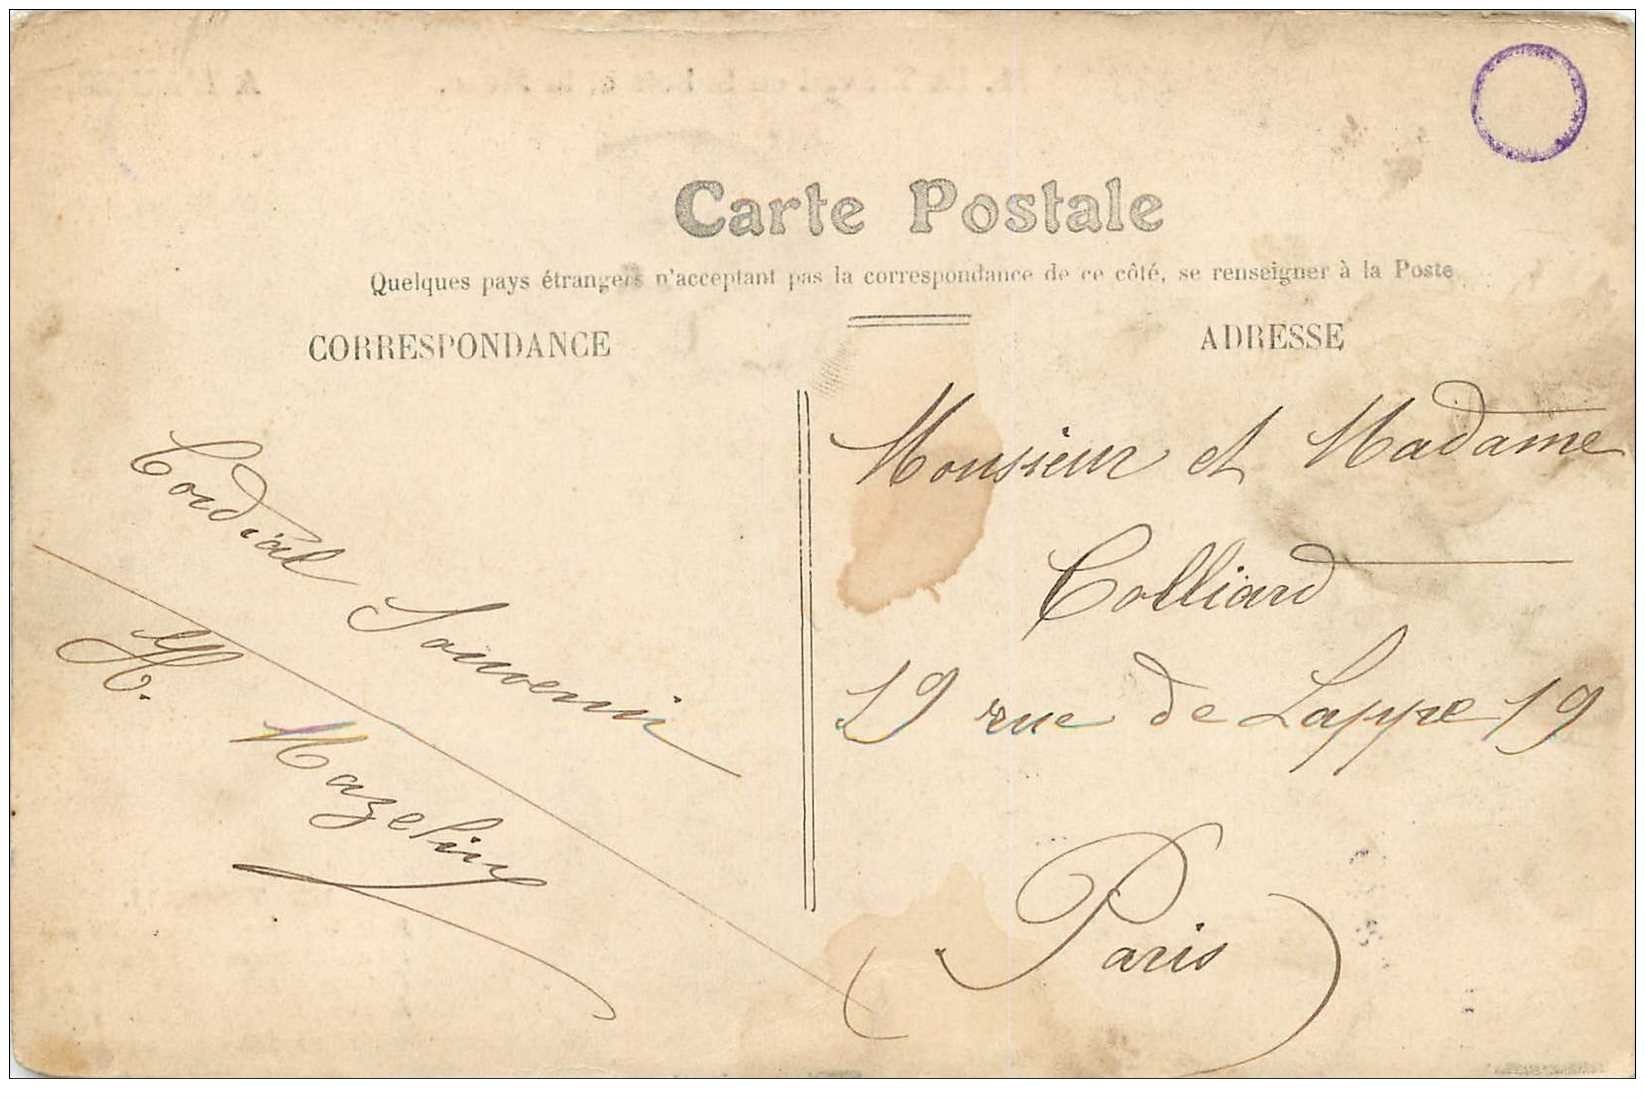 Carte Postale
Quelques pays étrangers n'acceptant pas la correspondance de ce côté, se renseigner à la Poste
CORRESPONDANCE
ADRESSE
Cordial Souvenir
H. Mazeliny
Monsieur et Madame
Colliard
19 rue de Lappe 19
Paris